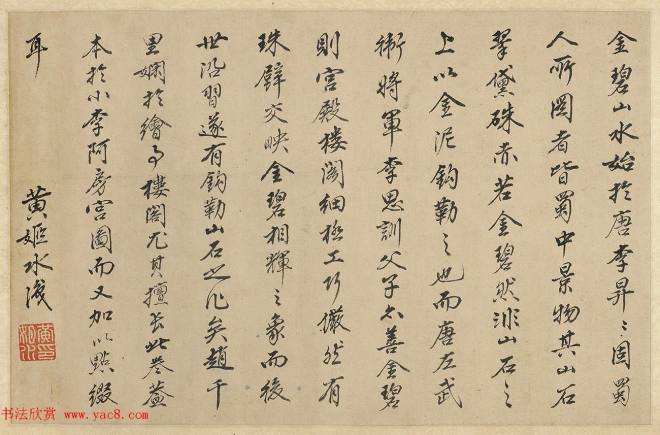 金碧山水始於唐李昇〻固蜀
人所圖者皆蜀中景物其山石
翠黛硃赤若金碧然非山石之
上以金泥鈎勒之也而唐左武
衛將軍李思訓父子亦善金碧
則宮殿樓閣細極工巧儼然有
珠璧交映金碧相輝之象而後
世沿習遂有鈎勒山石之作矣趙千
里嫻於繪事樓閣尤其擅長此卷蓋
本於小李阿房宮圖而又加以點綴
耳
黃姬水識
黃姬水
书法欣赏 www.yac8.com